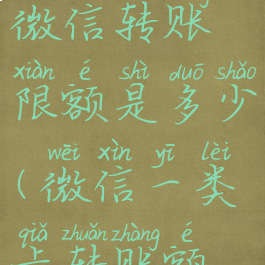 微信转账
xiàn é shì duō shǎo
限额是多少
wēi xìn yī lèi
(微信一类
qiǎ zhuǎn zhàng é
卡转账额